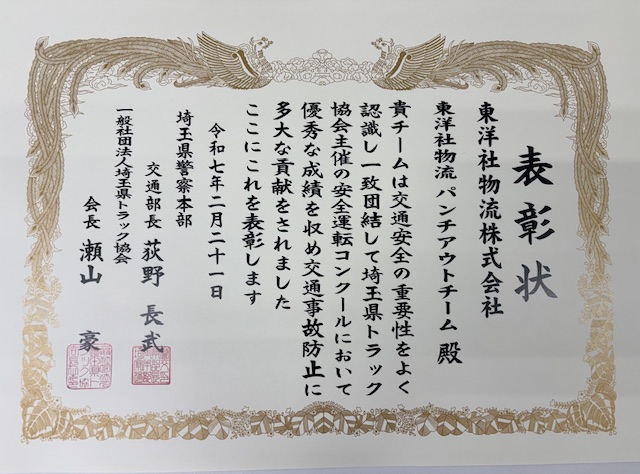 表彰状
東洋社物流株式会社
東洋社物流 パンチアウトチーム 殿
貴チームは交通安全の重要性をよく
認識し一致団結して埼玉県トラック
協会主催の安全運転コンクールにおいて
優秀な成績を収め交通事故防止に
多大な貢献をされました
ここにこれを表彰します
令和七年二月二十一日
埼玉県警察本部
交通部長 荻野 長武
一般社団法人埼玉県トラック協会
会長 瀬山 豪